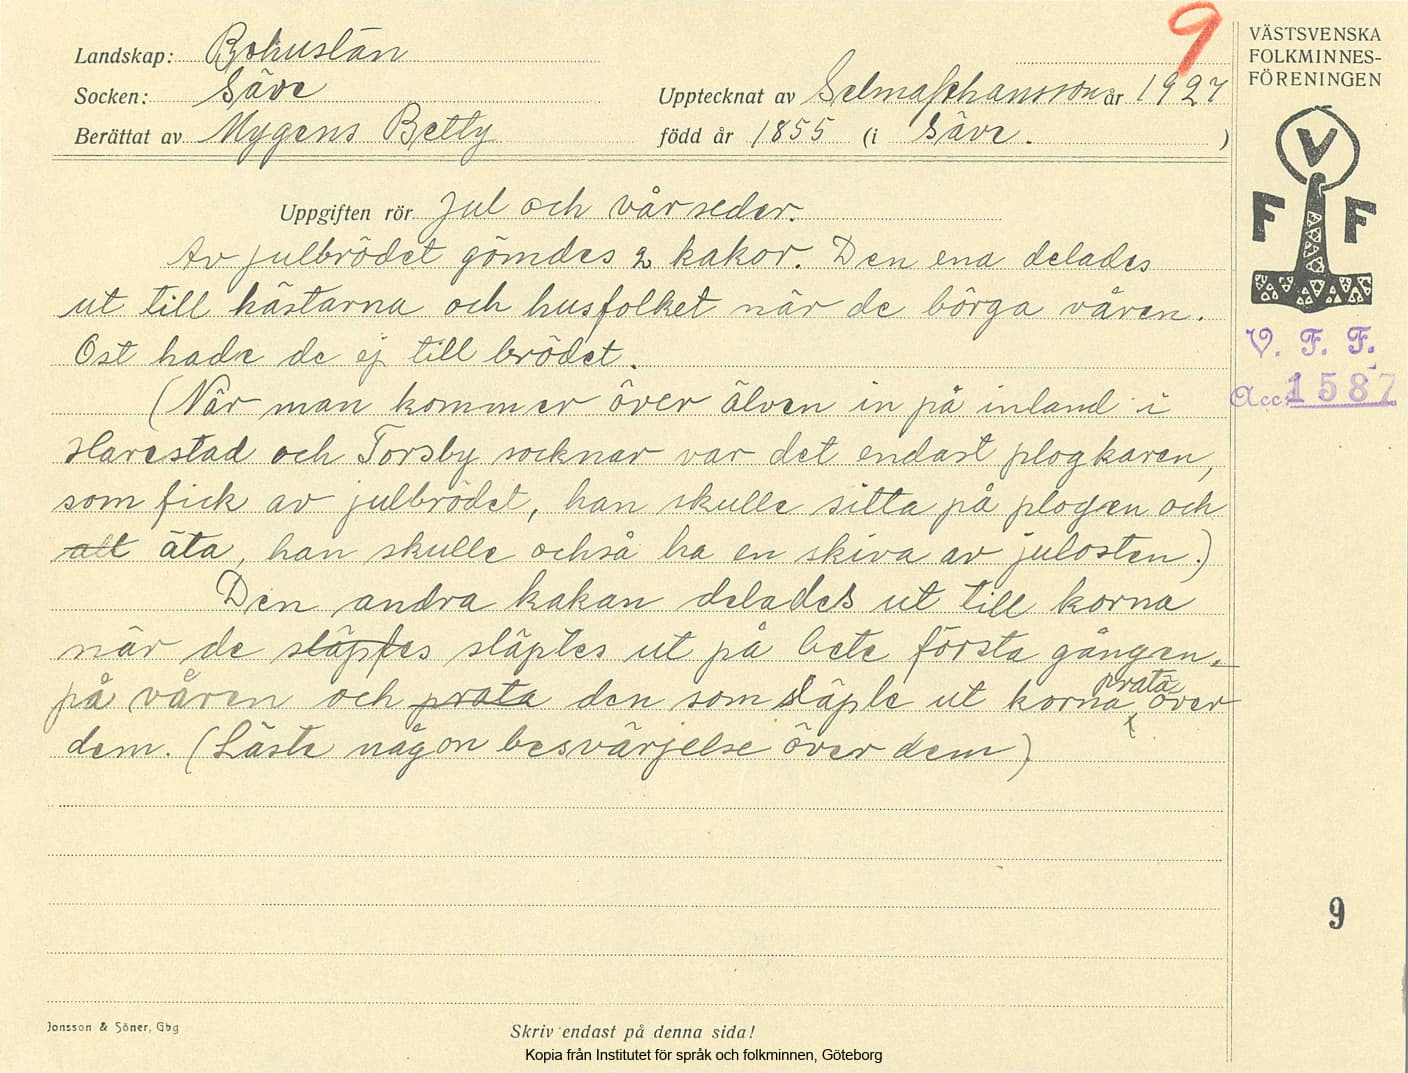 9
VÄSTSVENSKA
FOLKMINNES-
FÖRENINGEN
Landskap: Bohuslän
Socken: Säve
Upptecknat av Selma Johansson år 1927
Berättat av Mygens Betty
född år 1855 (i Säve. )
V
F F
V. F. F.
Acc: 1587
Uppgiften rör Jul och vårseder.
Av julbrödet gömdes 2 kakor. Den ena delades
ut till hästarna och husfolket när de börga våren.
Ost hade de ej till brödet.
(När man kommer över älven in på inland i
Harestad och Torsby socknar var det endast plogkaren,
som fick av julbrödet, han skulle sitta på plogen och
att äta, han skulle också ha en skiva av julosten.)
Den andra kakan delades ut till korna
när de släptes släptes ut på bete första gången
på våren och prata den som släpte ut korna prata över
dem. (Läste någon besvärjelse över dem)
9
Jonsson & Söner, Gbg
Skriv endast på denna sida!
Kopia från Institutet för språk och folkminnen, Göteborg